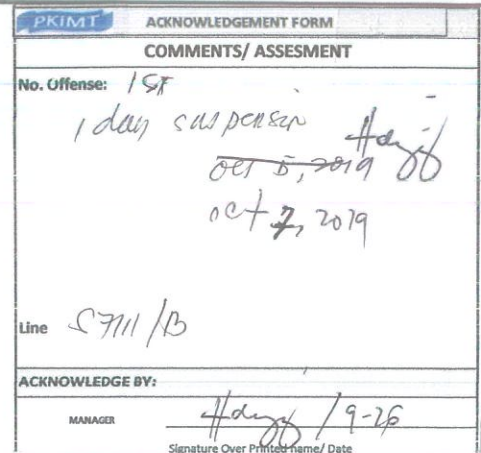 PKIMT ACKNOWLEDGEMENT FORM
COMMENTS/ ASSESMENT
No. Offense: 1ST
1 day suspension
oct 5, 2019
oct 7, 2019
Line S7111/B
ACKNOWLEDGE BY:
MANAGER / 9-26
Signature Over Printed name/ Date